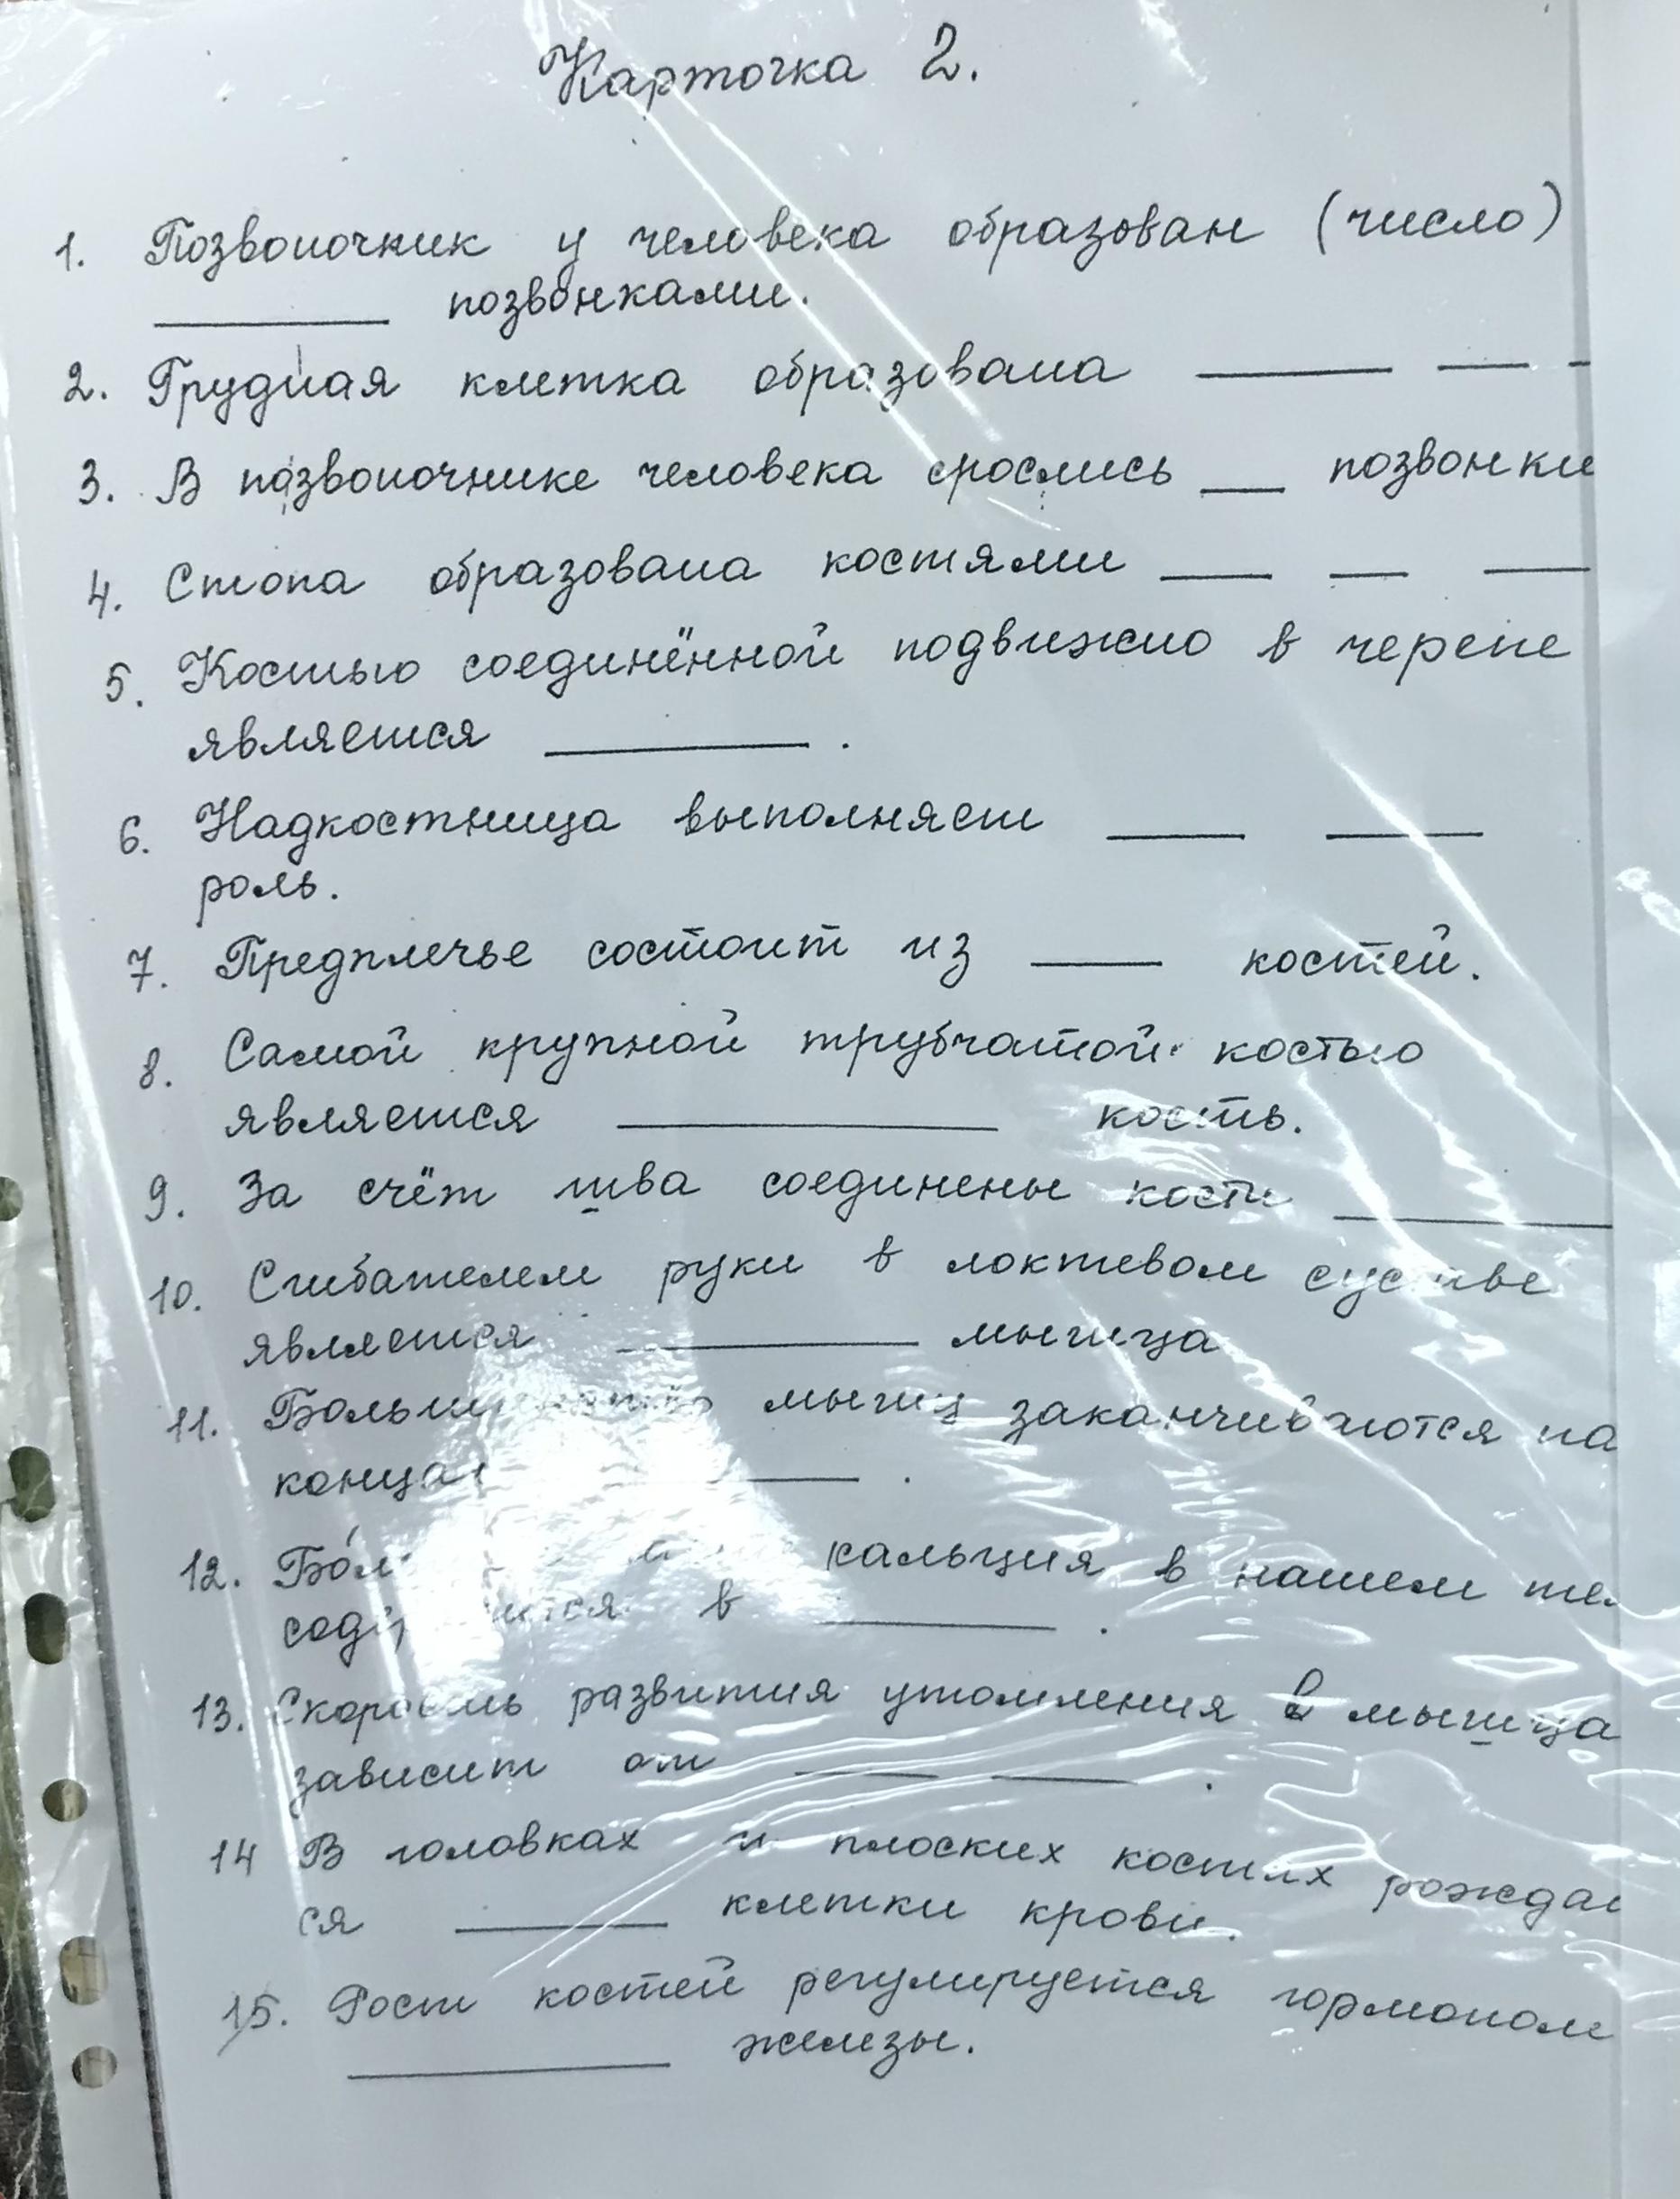 Карточка 2.
1. Позвоночник у человека образован (число)
______ позвонками.
2. Грудная клетка образована ______ ___ _
3. В позвоночнике человека срослись ___ позвонки
4. Стопа образована костями ___ ___ ___
5. Костью соединённой подвижно в черепе
является ______.
6. Надкостница выполняет ____ ____
роль.
7. Предплечье состоит из ____ костей.
8. Самой крупной трубчатой костью
является ________ кость.
9. За счёт шва соединены кости ______
10. Сгибателем руки в локтевом суставе
является ______ мышца
11. Большинство мышц заканчиваются на
______.
12. кальция в нашем
в ______.
13. Скорость развития утомления в мышца
зависит от ____ ____.
14 В головках и плоских костях рождаю
ся ______ клетки крови.
15. Рост костей регулируется гормоном
________ железы.